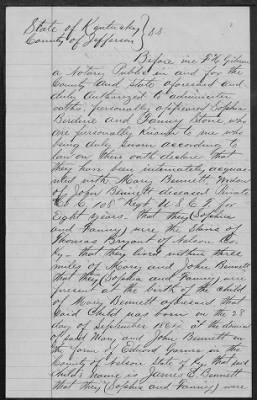 State of Kentucky } S.S.
County of Jefferson }
Before me
a Notary Public in and for the
County and State aforesaid and
duly Authorized to administer
oaths personally appeared Sophia
and Fanny Stone who
are personally known to me who
being duly sworn according to
law on their oath declare that
they have been intimately acquainted
with Mary Bennett Widow
of John Bennett deceased Private
Co C, 108" Regt U.S.C.I. for
Eight years. That they (Sophia
and Fanny) were the Slaves of
Thomas Bryant of Nelson Co.
Ky. that they lived within three
miles of Mary and John Bennett
that they (Sophia and Fanny) were
present at the birth of the child
of Mary Bennett aforesaid that
Said Child was born on the 28
day of September 1864 at the
of said Mary and John Bennett on
the farm of Edward in the
County of Nelson State of Ky that said
child's name is James E. Bennett
that they (Sophia and Fanny) were